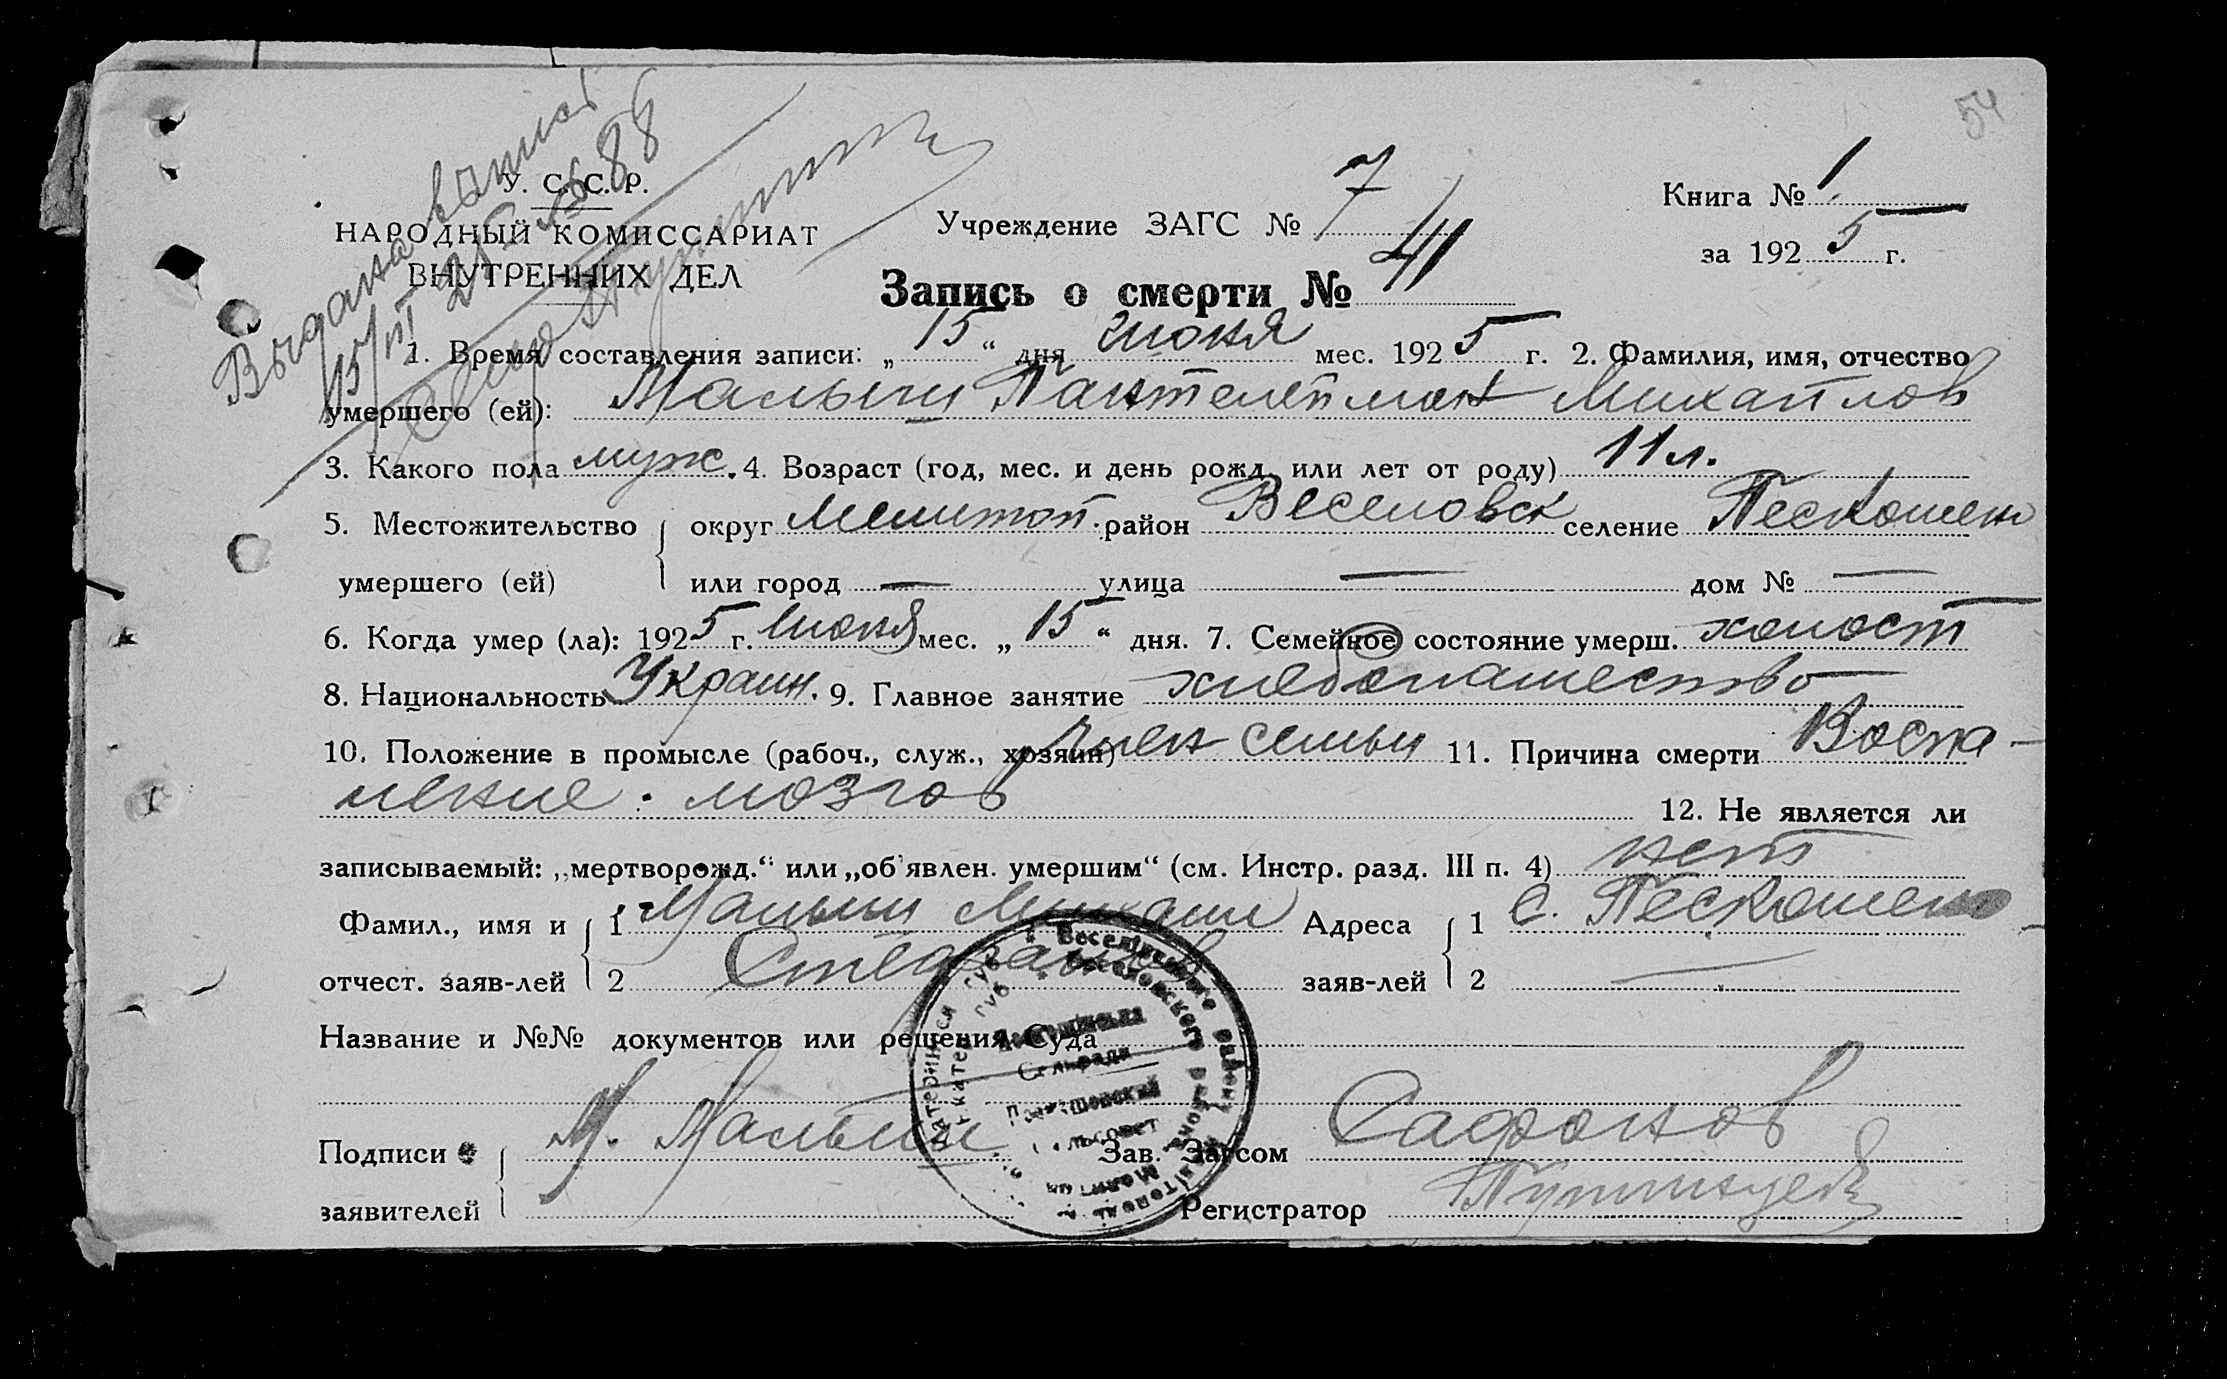 54
Выдана
15/VI 25 г. № 88
У. С. С. Р.
НАРОДНЫЙ КОМИССАРИАТ
ВНУТРЕННИХ ДЕЛ
Учреждение ЗАГС № 7
Книга № 1
за 1925 г.
Запись о смерти № 41
1. Время составления записи: „15“ дня июня мес. 1925 г. 2. Фамилия, имя, отчество
умершего (ей): Малыш Пантелеймон Михайлов
3. Какого пола муж. 4. Возраст (год, мес. и день рожд. или лет от роду) 11 л.
5. Местожительство округ Мелитоп. район Веселовск селение Пескошено
умершего (ей) или город — улица — дом № —
6. Когда умер (ла): 1925 г. Июня мес. „15“ дня. 7. Семейное состояние умерш. холост
8. Национальность Украин. 9. Главное занятие хлебопашество
10. Положение в промысле (рабоч., служ., хозяин) член семьи 11. Причина смерти Воспа-
ление мозгов
12. Не является ли
записываемый: „мертворожд.“ или „об'явлен. умершим“ (см. Инстр. разд. III п. 4) нет
Фамил., имя и 1 Малыш Михаил Адреса 1 с. Пескошено
отчест. заяв-лей 2 Стефанов заяв-лей 2 —
Название и №№ документов или решения Суда
Подписи М. Малыш Зав. Загсом Сафонов
заявителей Регистратор
Веселівського району
Веселовского района
Сельрада
Сельсовет